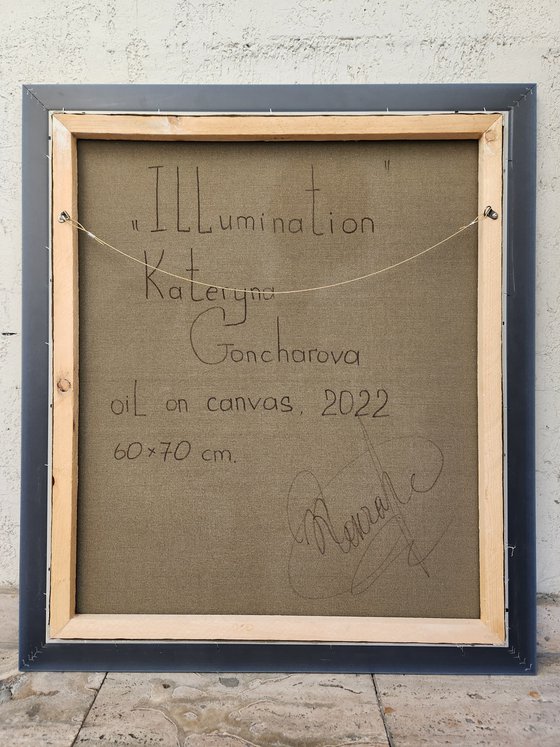 „ILLumination"
Kateryna
Goncharova
oiL on canvas, 2022
60×70 cm.